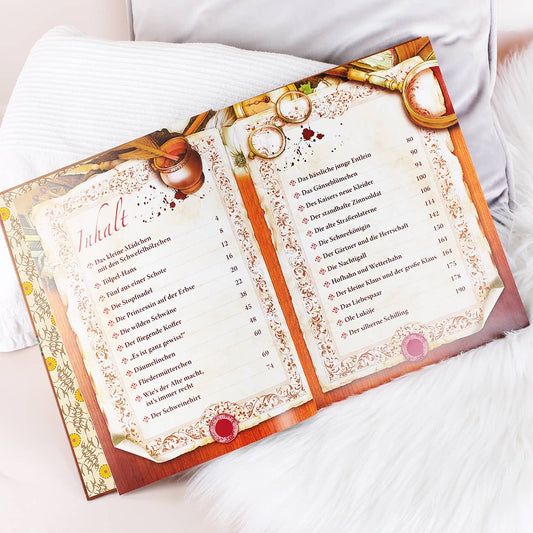 Inhalt
Das kleine Mädchen
mit den Schwefelhölzchen 4
Tölpel-Hans 8
Fünf aus einer Schote 12
Die Stopfnadel 16
Die Prinzessin auf der Erbse 20
Die wilden Schwäne 22
Der fliegende Koffer 38
„Es ist ganz gewiss“ 45
Däumelinchen 48
Fliedermütterchen 60
Wie's der Alte macht,
ist's immer recht 69
Der Schweinehirt 74
Das hässliche junge Entlein 80
Das Gänseblümchen 90
Des Kaisers neue Kleider 94
Der standhafte Zinnsoldat 100
Die alte Straßenlaterne 106
Die Schneekönigin 114
Der Gärtner und die Herrschaft 142
Die Nachtigall 150
Hofhahn und Wetterhahn
Der kleine Klaus und der große Klaus 161
Das Liebespaar 175
Ole Luköje 178
Der silberne Schilling 190